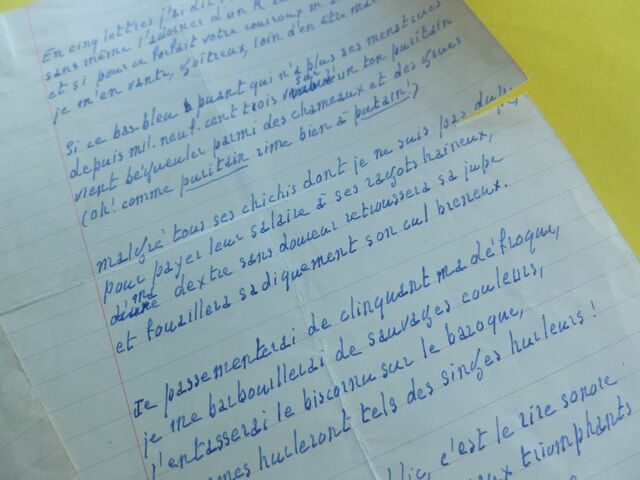 En cinq lettres j'ai dit,
sans même l'adoucir d'un k
et si pour ce forfait votre courroux m'a
je m'en vante, goîtreux, loin d'en être ma
Si ce bas-bleu puant qui n'a plus ses menstrues
depuis mil. neuf. cent trois sur un ton puritain
vient bégueuler parmi des chameaux et des grues
(oh! comme puritain rime bien à putain!)
malgré tous ses chichis dont je ne suis pas dupe,
pour payer leur salaire à ses ragots haineux,
ma dextre sans douceur retroussera sa jupe
et fouaillera sadiquement son cul breneux.
Je passementerai de clinquant ma défroque,
je me barbouillerai de sauvages couleurs,
j'entasserai le biscornu sur le baroque,
hurleront tels des singes hurleurs!
c'est le rire sonore
triomphants